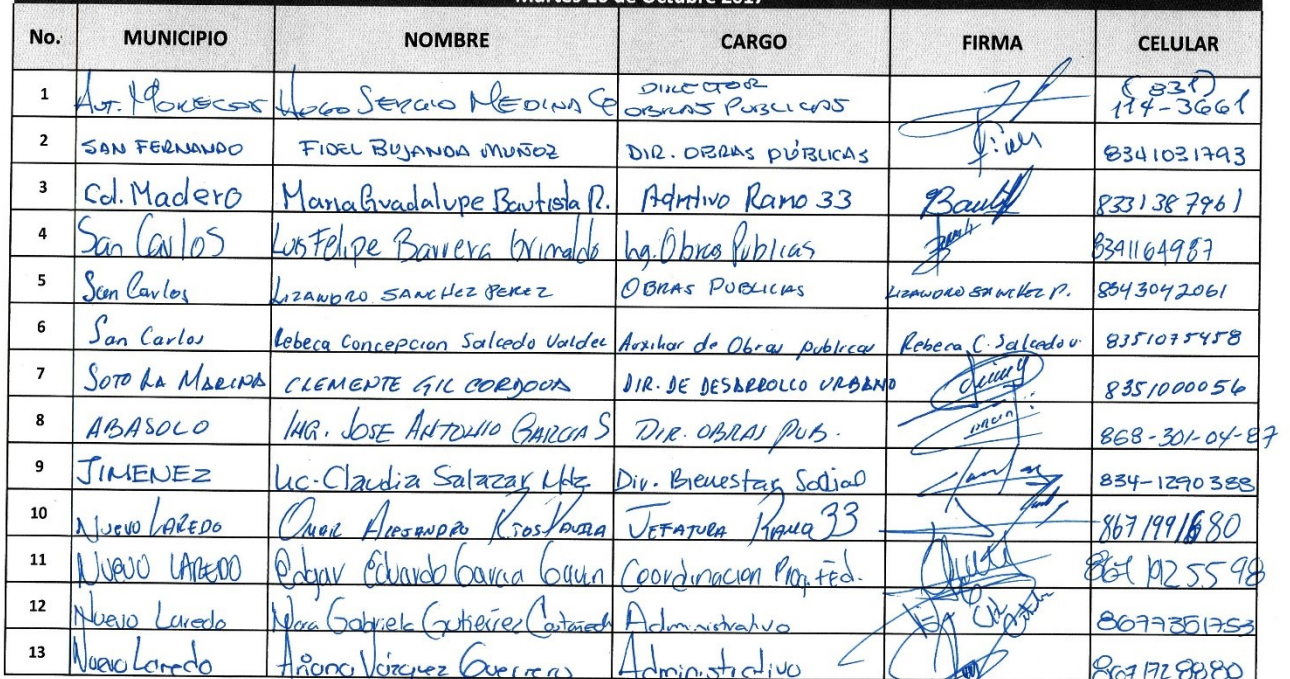 Martes 10 de Octubre 2017
No. MUNICIPIO NOMBRE CARGO FIRMA CELULAR
1 HUGO SERGIO MEDINA DIRECTOR OBRAS PUBLICAS (831) 114-3661
2 SAN FERNANDO FIDEL BUJANDA MUÑOZ DIR. OBRAS PÚBLICAS 8341031793
3 Cd. Madero Maria Guadalupe Bautista R. Admtivo Ramo 33 8331387961
4 San Carlos Luis Felipe Barrera Grimaldo Ing. Obras Publicas 8341164987
5 San Carlos LIZANDRO SANCHEZ PEREZ OBRAS PUBLICAS LIZANDRO SANCHEZ P. 8343042061
6 San Carlos Rebeca Concepcion Salcedo Valdez Auxiliar de Obras publicas Rebeca C. Salcedo V. 8351075458
7 SOTO LA MARINA CLEMENTE GIL CORDOVA DIR. DE DESARROLLO URBANO 8351000056
8 ABASOLO ING. JOSE ANTONIO GARCIA S DIR. OBRAS PUB. 868-301-04-87
9 JIMENEZ Lic. Claudia Salazar Hdz Dir. Bienestar Social 834-1290388
10 NUEVO LAREDO OMAR ALEJANDRO RIOS JEFATURA RAMO 33
11 NUEVO LAREDO Edgar Eduardo Garcia Gavin Coordinacion Prog. Fed. 867 1925598
12 Nuevo Laredo Nora Gabriela Gutierrez Castañeda Administrativo 8677351753
13 Nuevo Laredo Vázquez Guerrero Administrativo 8671728880